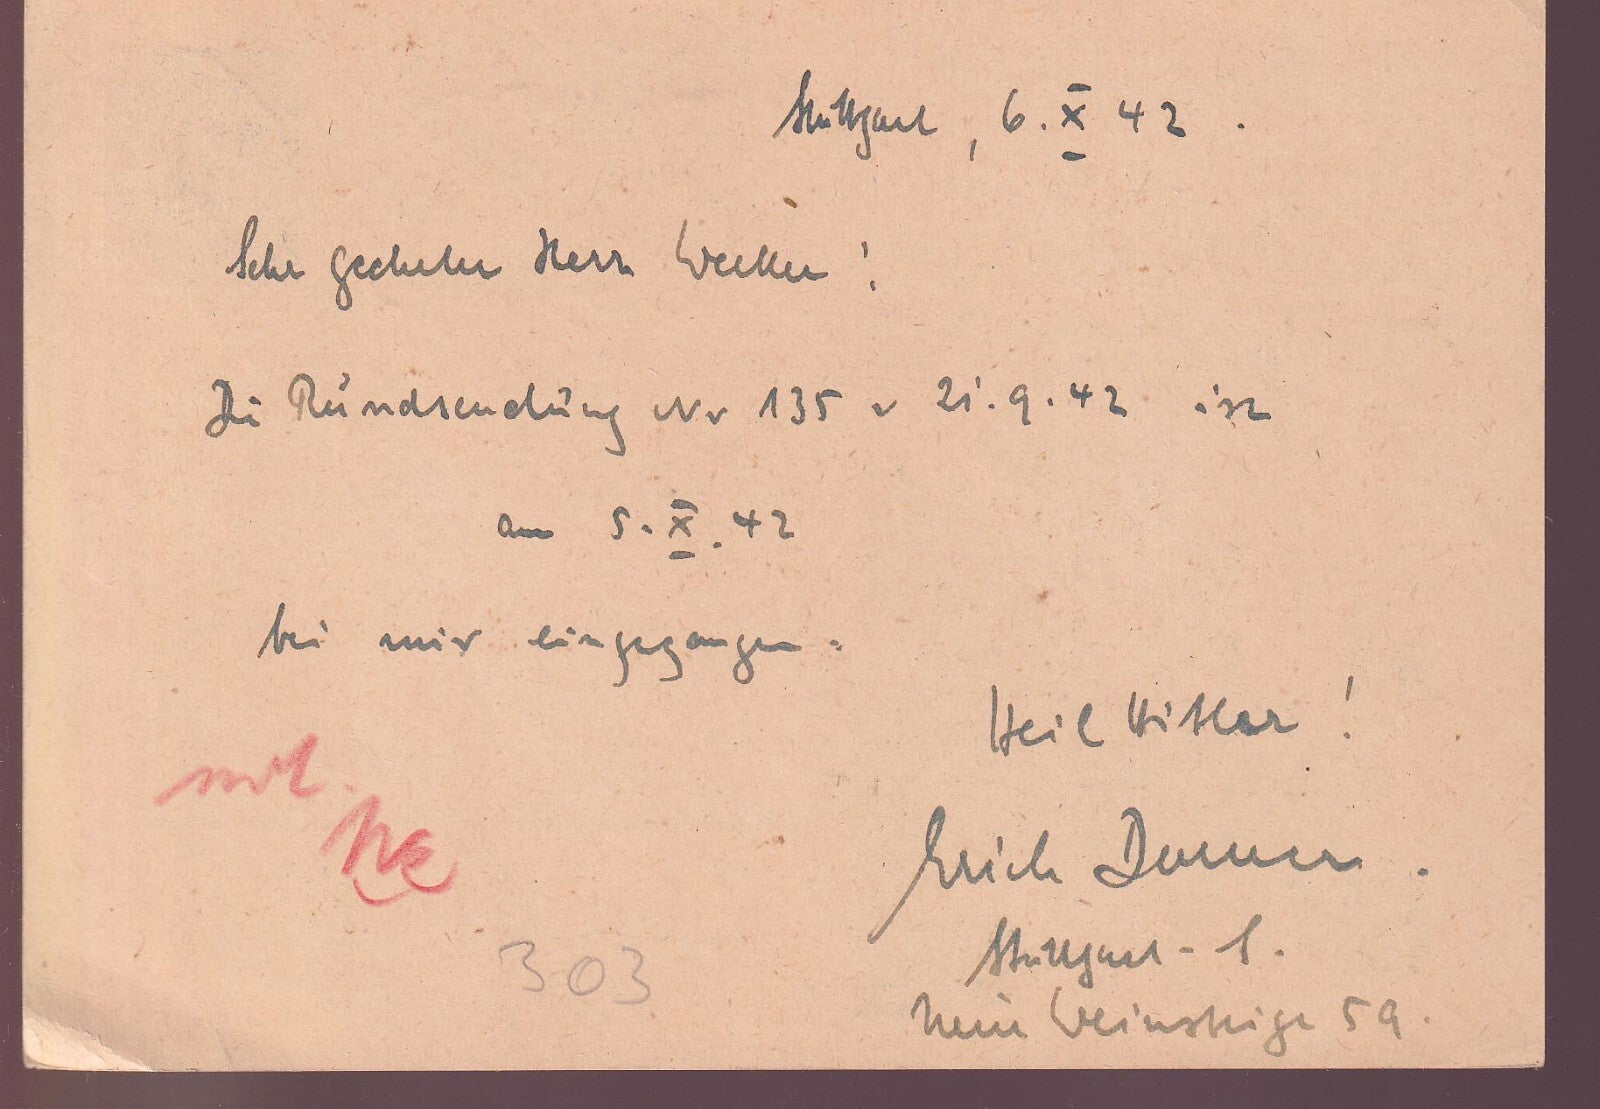 Stuttgart, 6. X 42.
Sehr geehrter Herr
Die Rundsendung Nr 135 v 21.9.42 ist
am 5.X.42
bei mir eingegangen.
Heil Hitler!
Erich
Stuttgart-S.
Neue Weinsteige 59.
303